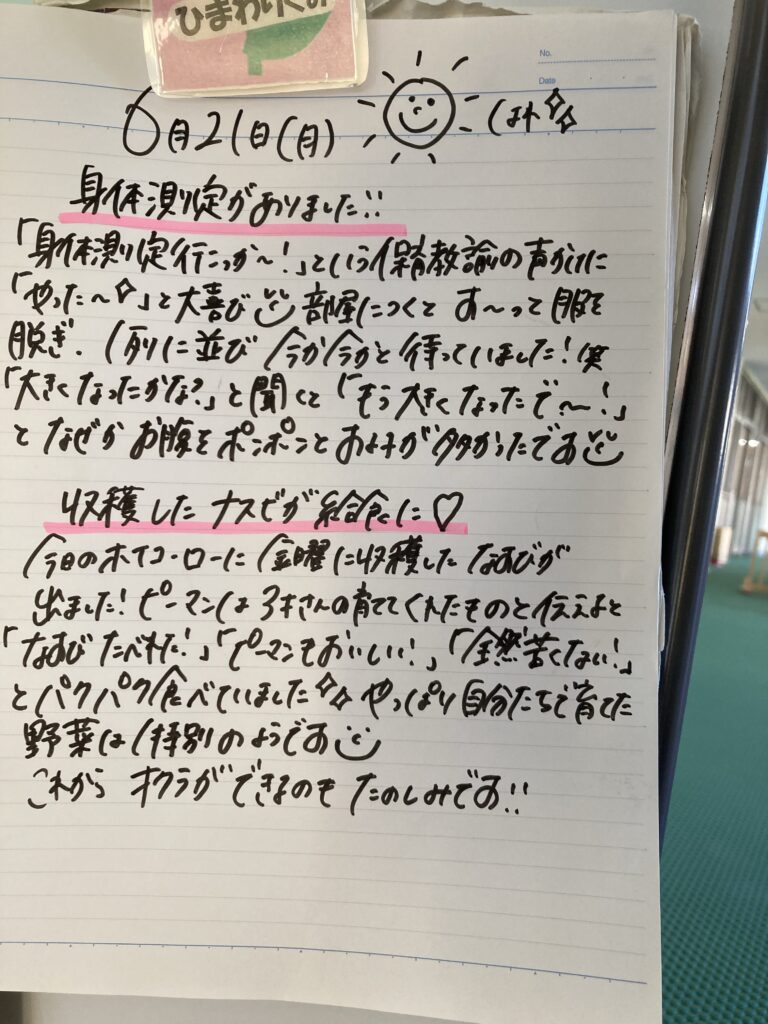 ひまわりぐみ
No.
Date
6月21日(月) はれ
身体測定がありました!!
「身体測定行こっか〜!」という保育教諭の声かけに
「やった〜✧」と大喜び 部屋につくと すーっと服を
脱ぎ、1列に並び 今か今かと待っていました!笑
「大きくなったかな?」と聞くと「もう大きくなったで〜!」
と なぜか お腹を ポンポンと する子が多かったです
収穫した ナスビが 給食に♡
今日のホイコーローに 金曜に収穫した なすびが
出ました!ピーマンは 3才さんの育ててくれたものと伝えると
「なすび たべれた!」「ピーマンもおいしい!」「全然苦くない!」
と パクパク食べていました✧✧ やっぱり 自分たちで育てた
野菜は 特別のようです
これから オクラが できるのも たのしみです!!